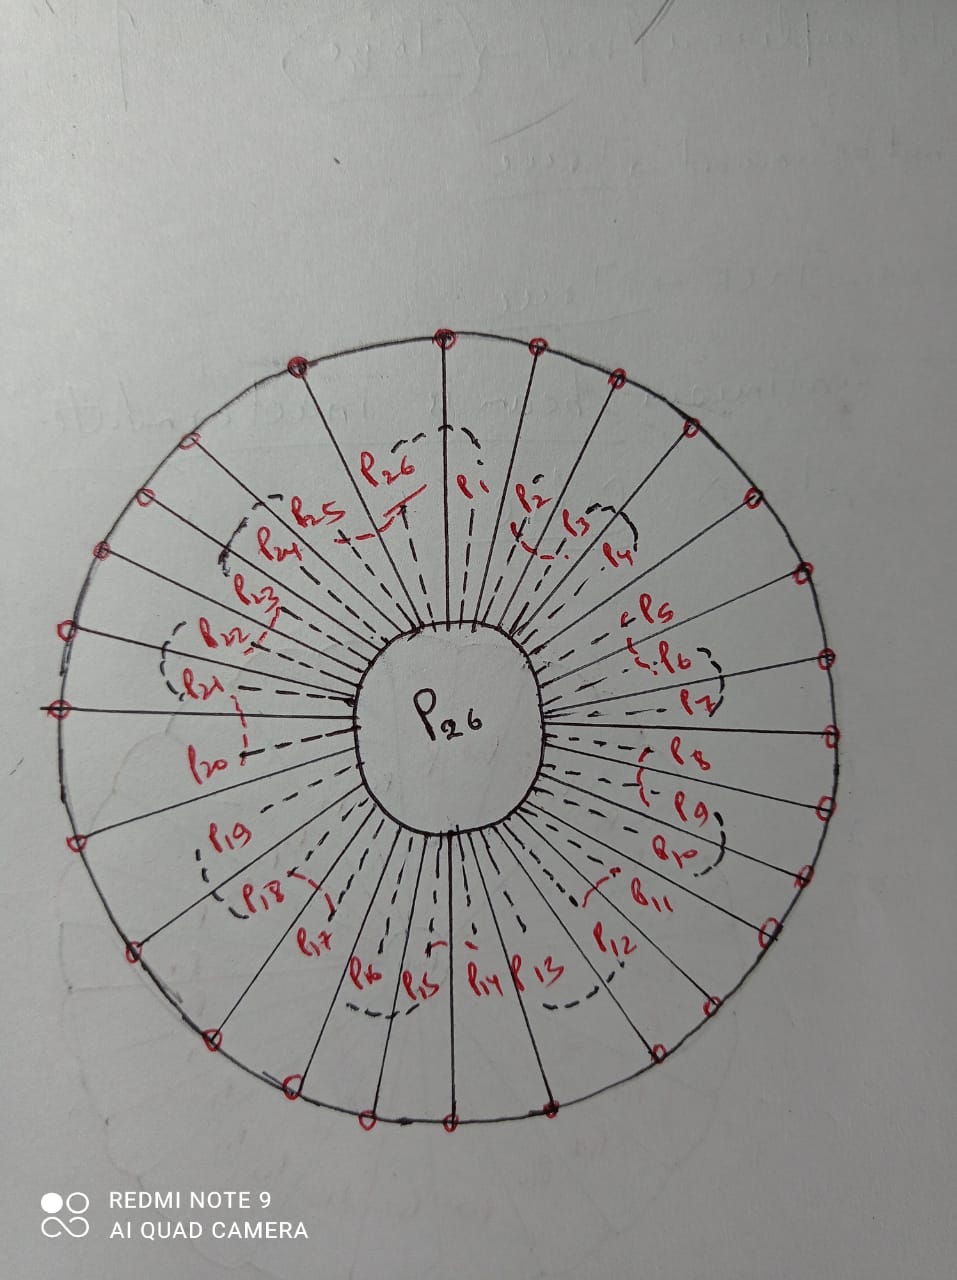 P26
P1
P2
P3
P4
P5
P6
P7
P8
P9
P10
P11
P12
P13
P14
P15
P16
P17
P18
P19
P20
P21
P22
P23
P24
P25
P26
REDMI NOTE 9
AI QUAD CAMERA